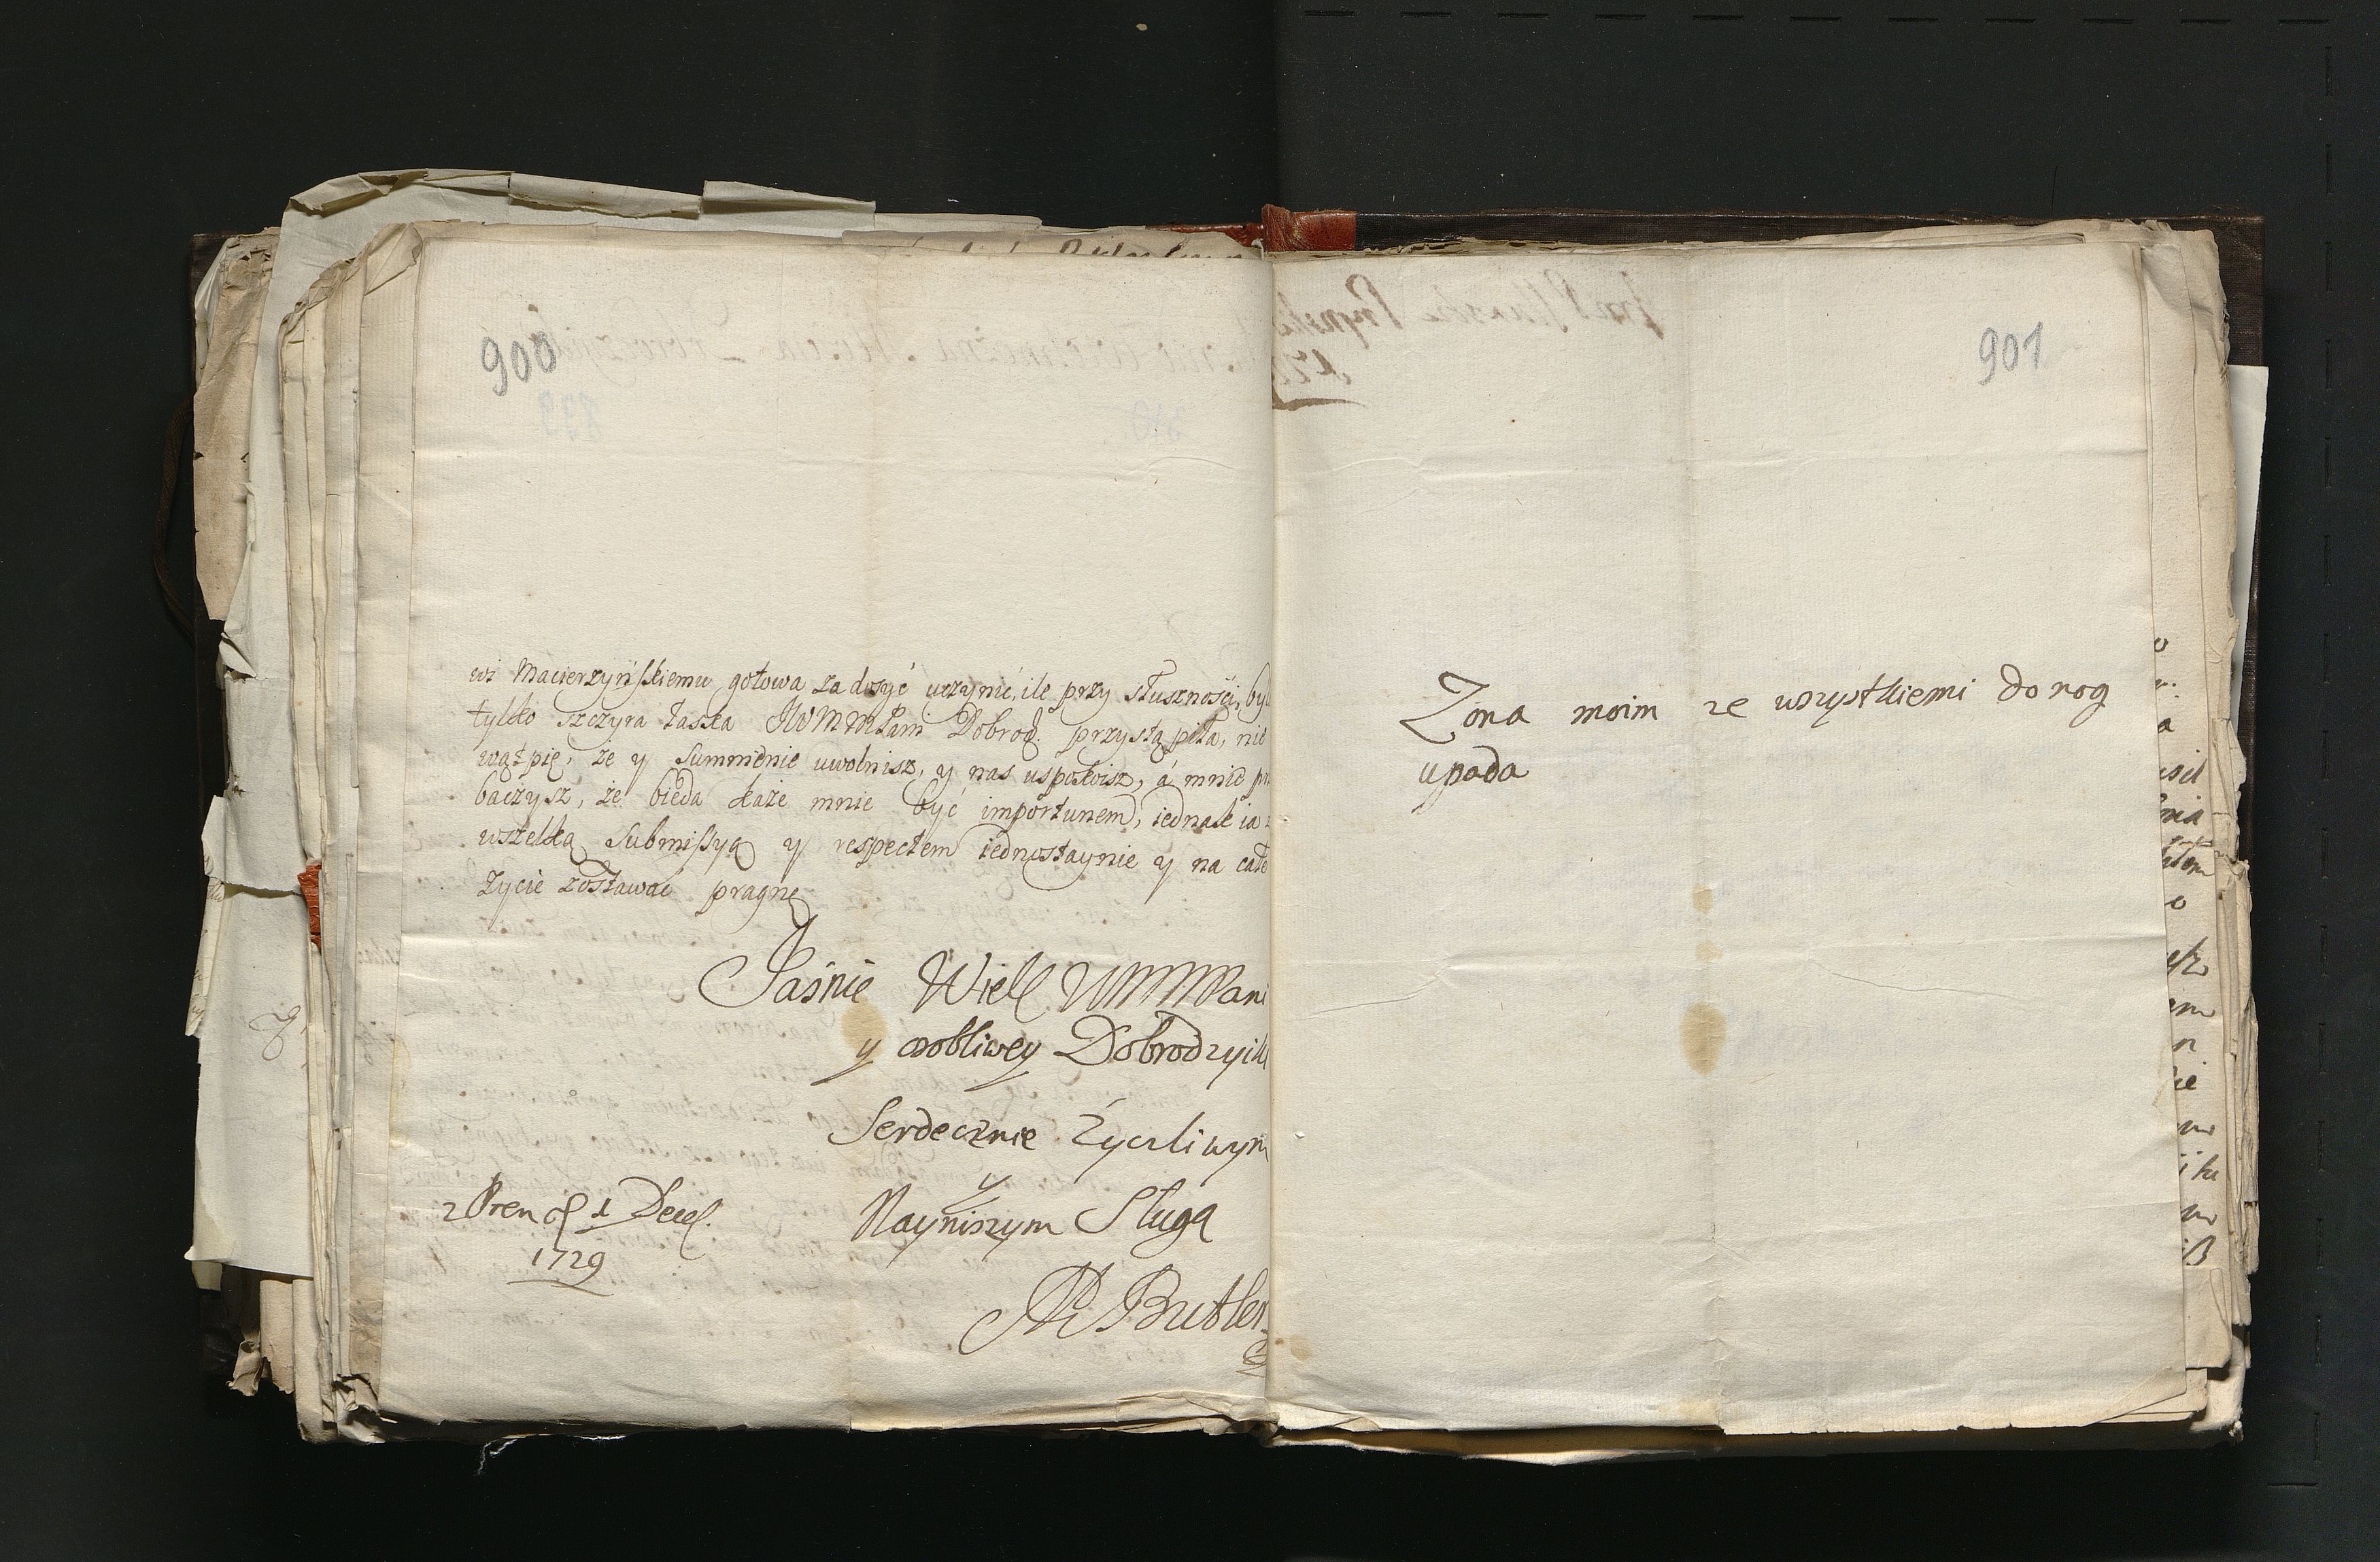 900
wi Macierzyńskiemu gotowa za dosyć uczynić, ile przy słuszności, by
tylko szczyra łaska JWMMPani Dobrod. przystąpiła, nie
wątpię, że y Summienie uwolnisz, y nas uspokoisz, á mnie
baczysz, że bieda każe mnie być importunem, iednak ia
wszelką Submissyą y respectem iednostaynie y na całe
życie zostawać pragnę
Jaśnie Wiel WMMPani
y osobliwey Dobrodzyik
Serdecznie Życzliwym
y
z Pren d 1 Dece.
Nayniszym Sługą
1729
Butler
901
Zona moim ze wszystkiemi do nog
upada